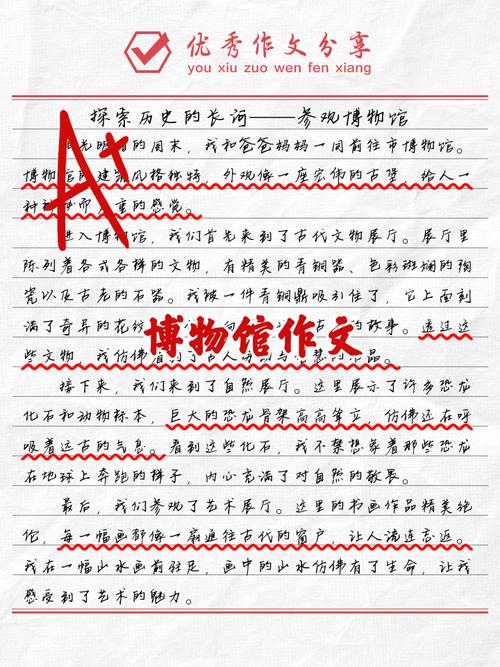 优秀作文分享
you xiu zuo wen fen xiang
探索历史的长河——参观博物馆
A+
的周末，我和爸爸妈妈一同前往市博物馆。
博物馆的建筑风格独特，外观像一座宏伟的古堡，给人一
种 而 重的感觉。
进入博物馆，我们首先来到了古代文物展厅。展厅里
陈列着各式各样的文物，有精美的青铜器、色彩斑斓的陶
瓷以及古老的石器。我被一件青铜鼎吸引住了，它上面刻
满了奇异的花纹 向 古 的故事。透过这
博物馆作文
些文物，我仿佛看到了古人 品。
接下来，我们来到了自然展厅。这里展示了许多恐龙
化石和动物标本，巨大的恐龙骨架高高耸立，仿佛还在呼
吸着远古的气息。看到这些化石，我不禁想象着那些恐龙
在地球上奔跑的样子，内心充满了对自然的敬畏。
最后，我们参观了艺术展厅。这里的书画作品精美绝
伦，每一幅画都像一扇通往古代的窗户，让人流连忘返。
我在一幅山水画前驻足，画中的山水仿佛有了生命，让我
感受到了艺术的魅力。